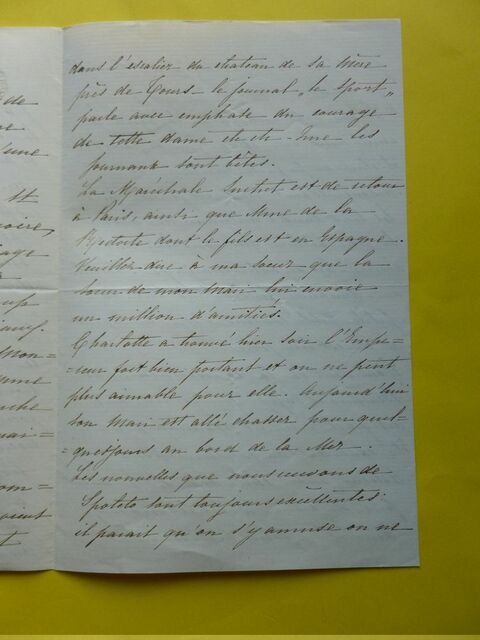 de
une
St
oire,
iage
a
up
Mon=
mme
che
mai=
om=
oient
t
dans l'escalier du chateau de sa mère
près de Tours - le journal "le Sport"
parle avec emphase du courage
de cette dame etc etc - Que les
journaux sont bêtes.
La Maréchale est de retour
à Paris, ainsi que Mme de la
dont le fils est en Espagne.
Veuillez dire à ma soeur que la
soeur de mon mari lui envoie
un million d'amitiés.
Charlotte a trouvé hier soir l'Empe=
reur fort bien portant et on ne peut
plus aimable pour elle. Aujourd'hui
son mari est allé chasser pour quel=
=quesjours au bord de la Mer.
Les nouvelles que nous avons de
Spoleto sont toujours excellentes:
il parait qu'on s'y amuse on ne